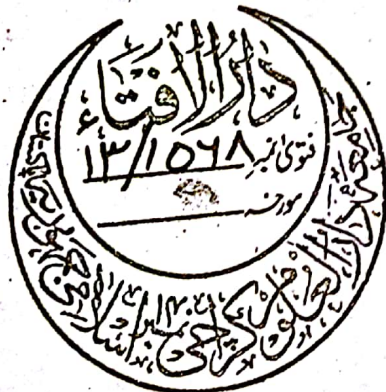 دارالافتاء
فتویٰ نمبر ۱۳/۱۵۶۸
مورخہ
جامعہ دارالعلوم کراچی نمبر ۱۴ اسلامی جمہوریہ پاکستان